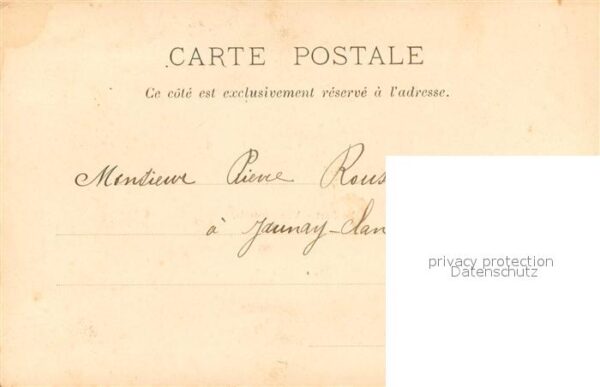 CARTE POSTALE
Ce côté est exclusivement réservé à l'adresse.
Monsieur Pierre Rous
à Jaunay-Clan
privacy protection
Datenschutz